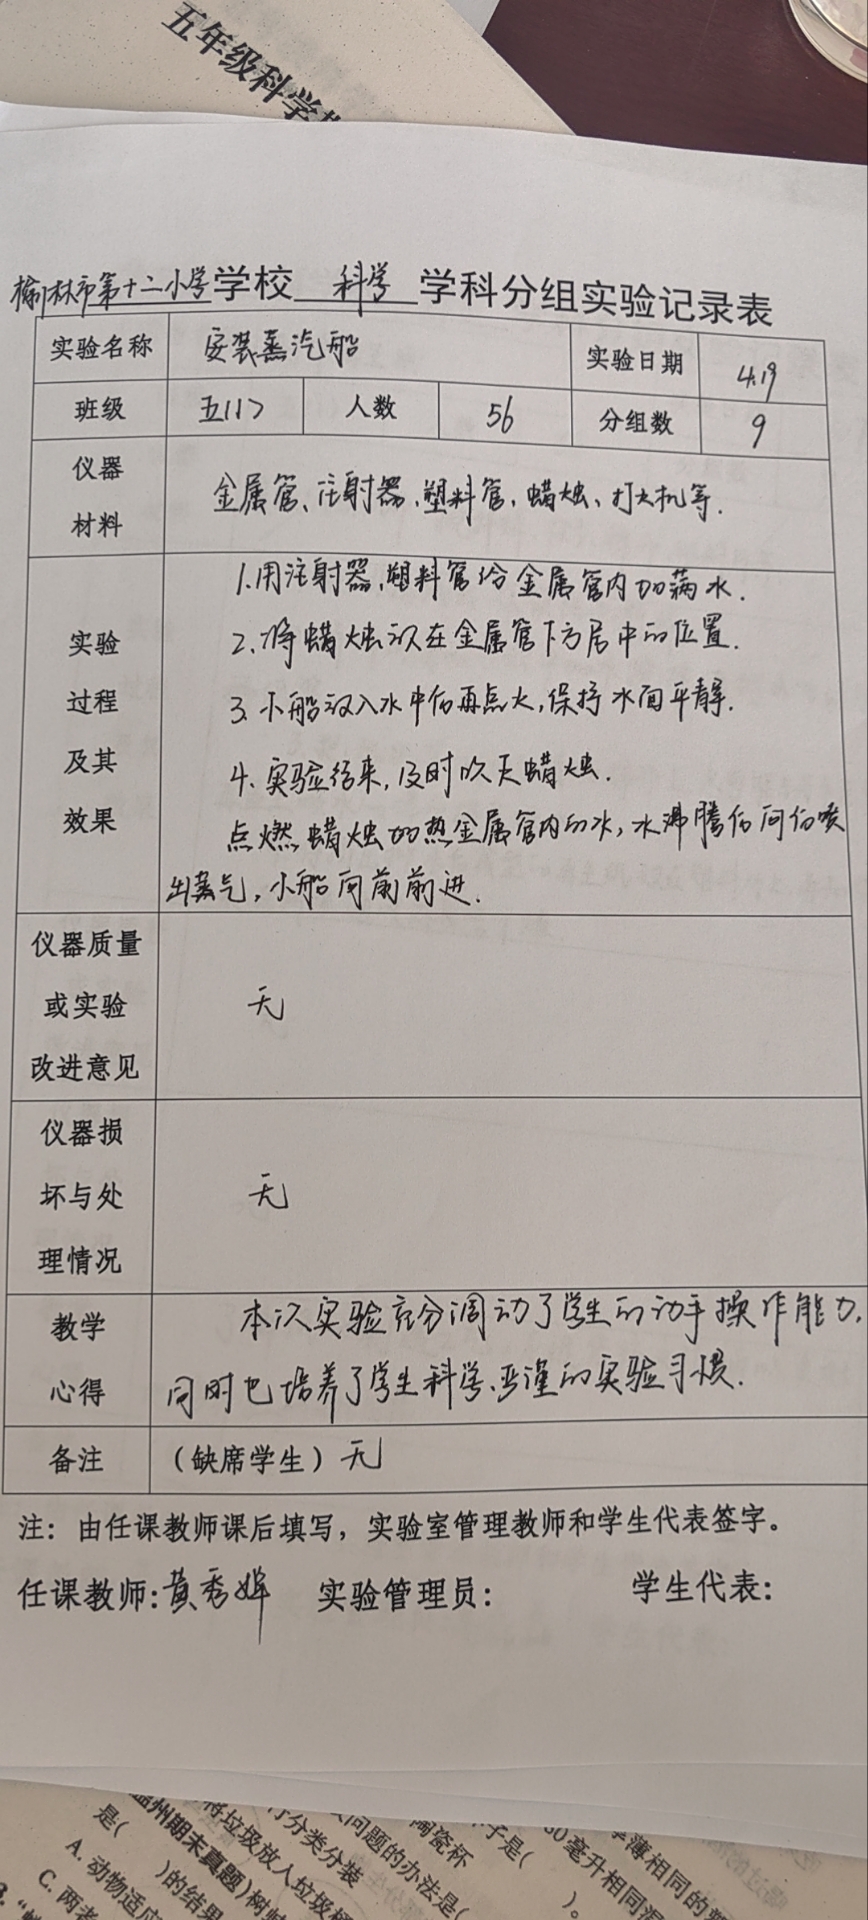 五年级科学
榆林市第十二小学学校 科学 学科分组实验记录表
实验名称 安装蒸汽船 实验日期 4.19
班级 五(1) 人数 56 分组数 9
仪器
材料
金属管、注射器、塑料管、蜡烛、打火机等.
实验
过程
及其
效果
1.用注射器、塑料管给金属管内加满水.
2.将蜡烛放在金属管下方居中的位置.
3.小船放入水中后再点火,保持水面平静.
4.实验结束,及时吹灭蜡烛.
点燃蜡烛加热金属管内的水,水沸腾后向后喷
出蒸气,小船向前前进.
仪器质量
或实验
改进意见
无
仪器损
坏与处
理情况
无
教学
心得
本次实验充分调动了学生的动手操作能力,
同时也培养了学生科学、严谨的实验习惯.
备注 (缺席学生)无
注：由任课教师课后填写，实验室管理教师和学生代表签字。
任课教师:黄秀婵 实验管理员: 学生代表:
温州期末真题)树
将垃圾放入垃圾
行分类分装
问题的办法是(
陶瓷杯
子是(
毫升相同
薄相同的
是( )的结果
A.动物适应
C.两者